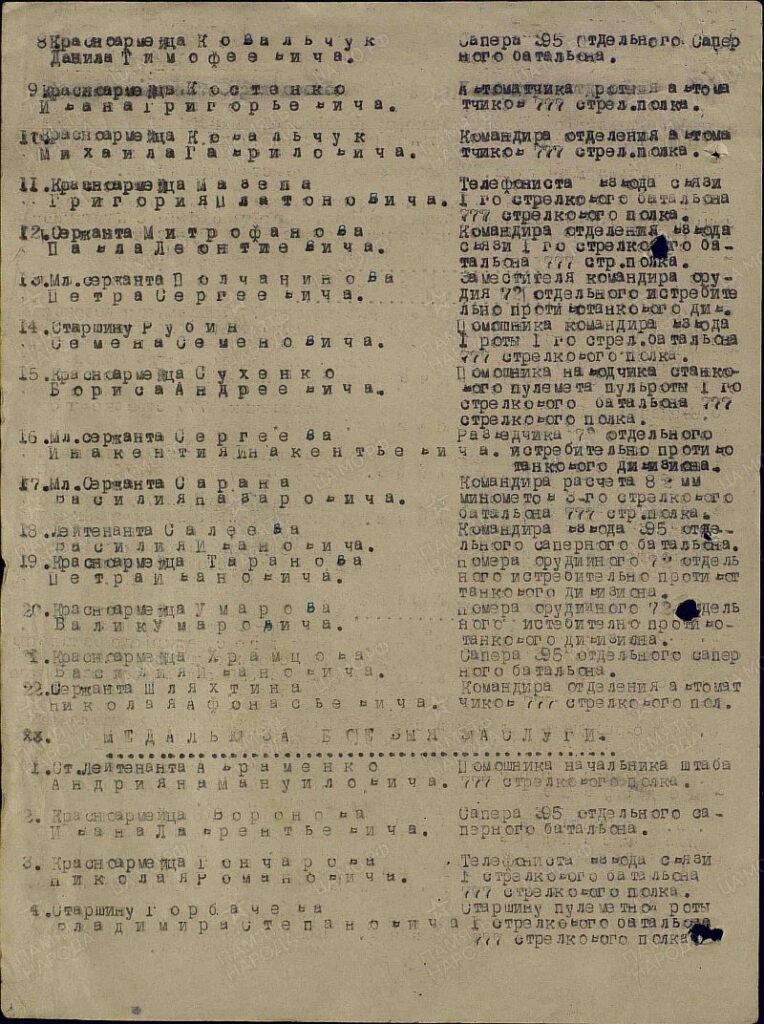 8 Красноармейца Ковальчук Сапера 395 отдельного Сапер
Данила Тимофеевича. ного батальона.
9 Красноармейца Костенко Автоматчика роты автома
Ивана Григорьевича. тчиков 777 стрел.полка.
10 Красноармейца Ковальчук Командира отделения автома
Михаила Гавриловича. тчиков 777 стрел.полка.
11. Красноармейца Мазепа Телефониста взвода связи
Григория Платоновича. 1 го стрелкового батальона
777 стрелкового полка.
12. Сержанта Митрофанова Командира отделения взвода
Павла Леонтиевича. связи 1 го стрелкового ба-
тальона 777 стр.полка.
13. Мл.сержанта Полчанинова Заместителя командира ору-
Петра Сергеевича. дия 72 отдельного истребите
льно противотанкового див.
14. Старшину Рубин Помошника командира взвода
Семена Семеновича. 1 роты 1 го стрел.батальона
777 стрелкового полка.
15. Красноармейца Сухенко Помошника наводчика станко-
Бориса Андреевича. вого пулемета пульроты 1 го
стрелкового батальона 777
стрелкового полка.
16. Мл.сержанта Сергеева Разведчика 72 отдельного
Инакентия Инакентьевича. истребительно противо
танкового дивизиона.
17. Мл.Сержанта Сарана Командира расчета 82 мм
Василия Назаровича. минометов 3-го стрелкового
батальона 777 стр.полка.
18. Лейтенанта Салеева Командира взвода 395 отде-
Василия Ивановича. льного саперного батальона.
19. Красноармейца Таранова номера орудийного 72 отдель
Петра Ивановича. ного истребительно противот
танкового дивизиона.
20. Красноармейца Умарова номера орудийного 72 отдель
Валик Умаровича. ного истребително противо-
танкового дивизиина.
21. Красноармейца Храмцова Сапера 395 отдельного сапер
Василия Ивановича. ного батальона.
22. Сержанта Шляхтина Командира отделения автомат
Николая Афонасьевича. чиков 777 стрелкового пол.
МЕДАЛЬЮ ЗА БОЕВЫЕ ЗАСЛУГИ.
1. Ст.Лейтенанта Авраменко Помошника начальника штаба
Андрияна Мануиловича. 777 стрелкового полка.
2. Красноармейца Воронова Сапера 395 отдельного са-
Ивана Лаврентьевича. перного батальона.
3. Красноармейца Гончарова Телефониста взвода связи
Николая Романовича. 1 стрелкового батальона
777 стрелкового полка.
4. Старшину Горбачева Старшину пулеметной роты
Владимира Степановича 1 стрелкового батальона
777 стрелкового полка